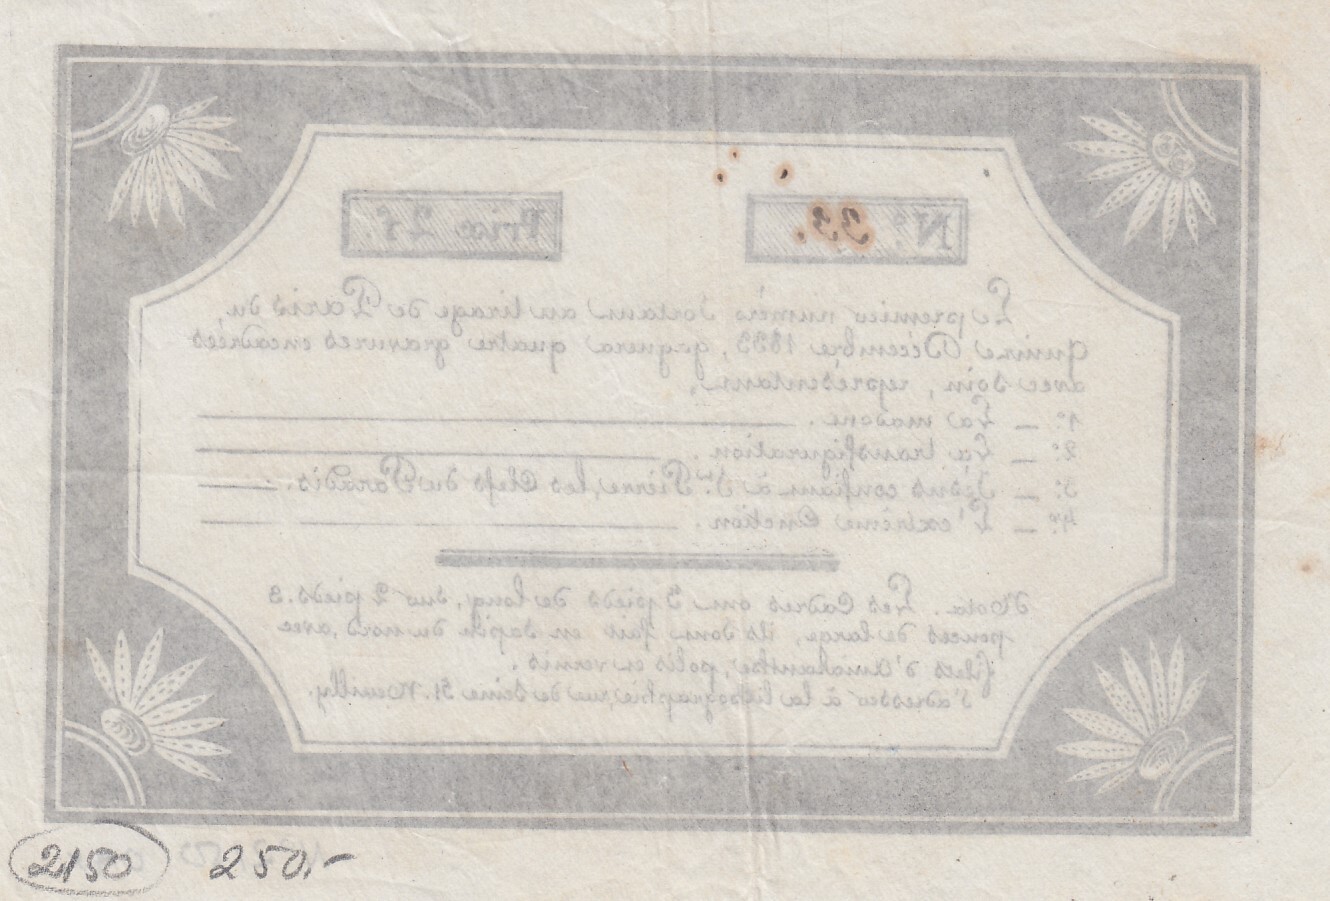 N.º 33.
Prix 25ᶜ
Le premier numéro sortant au tirage de Paris du
quinze Décembre 1833, gagnera quatre gravures encadrées
avec soin, représentant.
1º. — La madone.
2º. — La transfiguration.
3º. — Jésus confiant à Sᵗ. Pierre, les Clefs du Paradis.
4º. — L'extrême Onction.
Nota. Les Cadres ont 3 pieds de long, sur 2 pieds. 8
pouces de large, ils sont fait en sapin du nord, avec
filets d'Amaranthe, polis en vernis.
S'adresser à la lithographie, rue de Seine 51. Neuilly.
2150 250,-